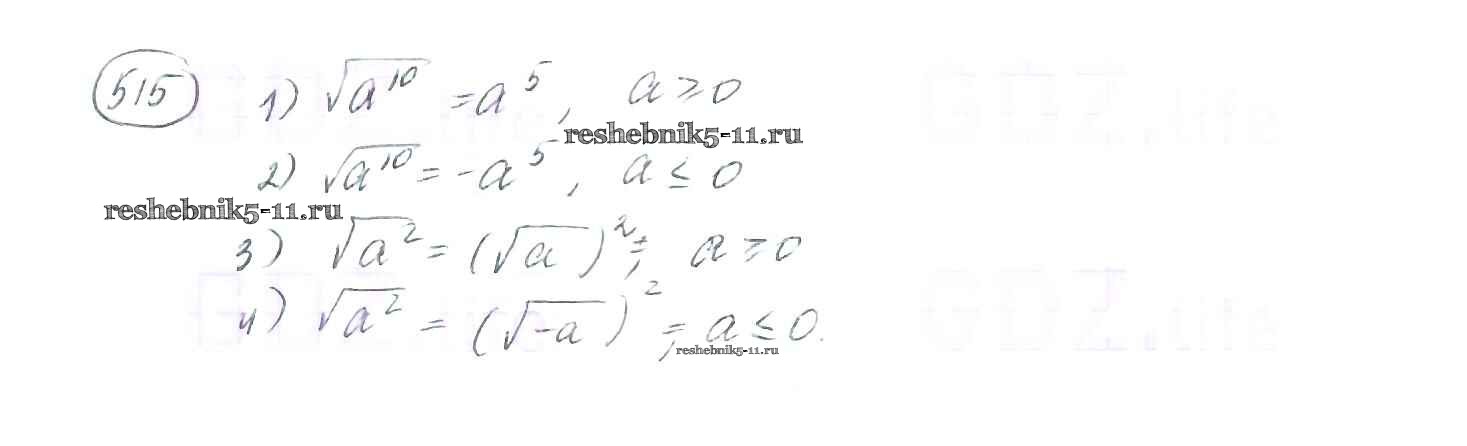 515 1) √a¹⁰ = a⁵, a ≥ 0
reshebnik5-11.ru
2) √a¹⁰ = -a⁵, a ≤ 0
reshebnik5-11.ru
3) √a² = (√a)², a ≥ 0
4) √a² = (√-a)², a ≤ 0.
reshebnik5-11.ru
GDZ.life
GDZ.life
GDZ.life
GDZ.life